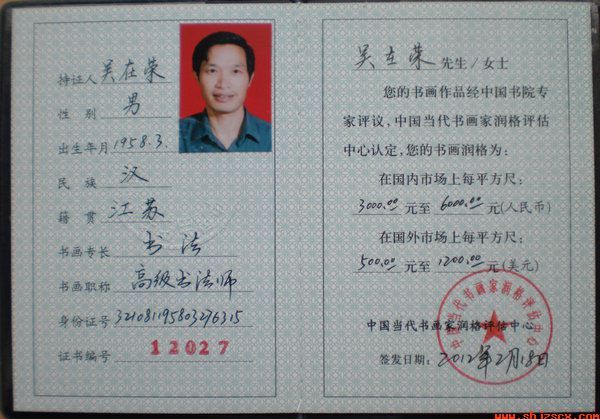 持证人 吴在荣
性别 男
出生年月 1958.3.
民族 汉
籍贯 江苏
书画专长 书法
书画职称 高级书法师
身份证号 321081195803276315
证书编号 12027
吴在荣 先生/女士
您的书画作品经中国书院专
家评议，中国当代书画家润格评估
中心认定，您的书画润格为：
在国内市场上每平方尺：
3000.00 元至 6000.00 元(人民币)
在国外市场上每平方尺：
500.00 元至 1200.00 元(美元)
中国当代书画家润格评估中心
中国当代书画家润格评估中心
签发日期：2012年2月18日
www.shjzscx.com